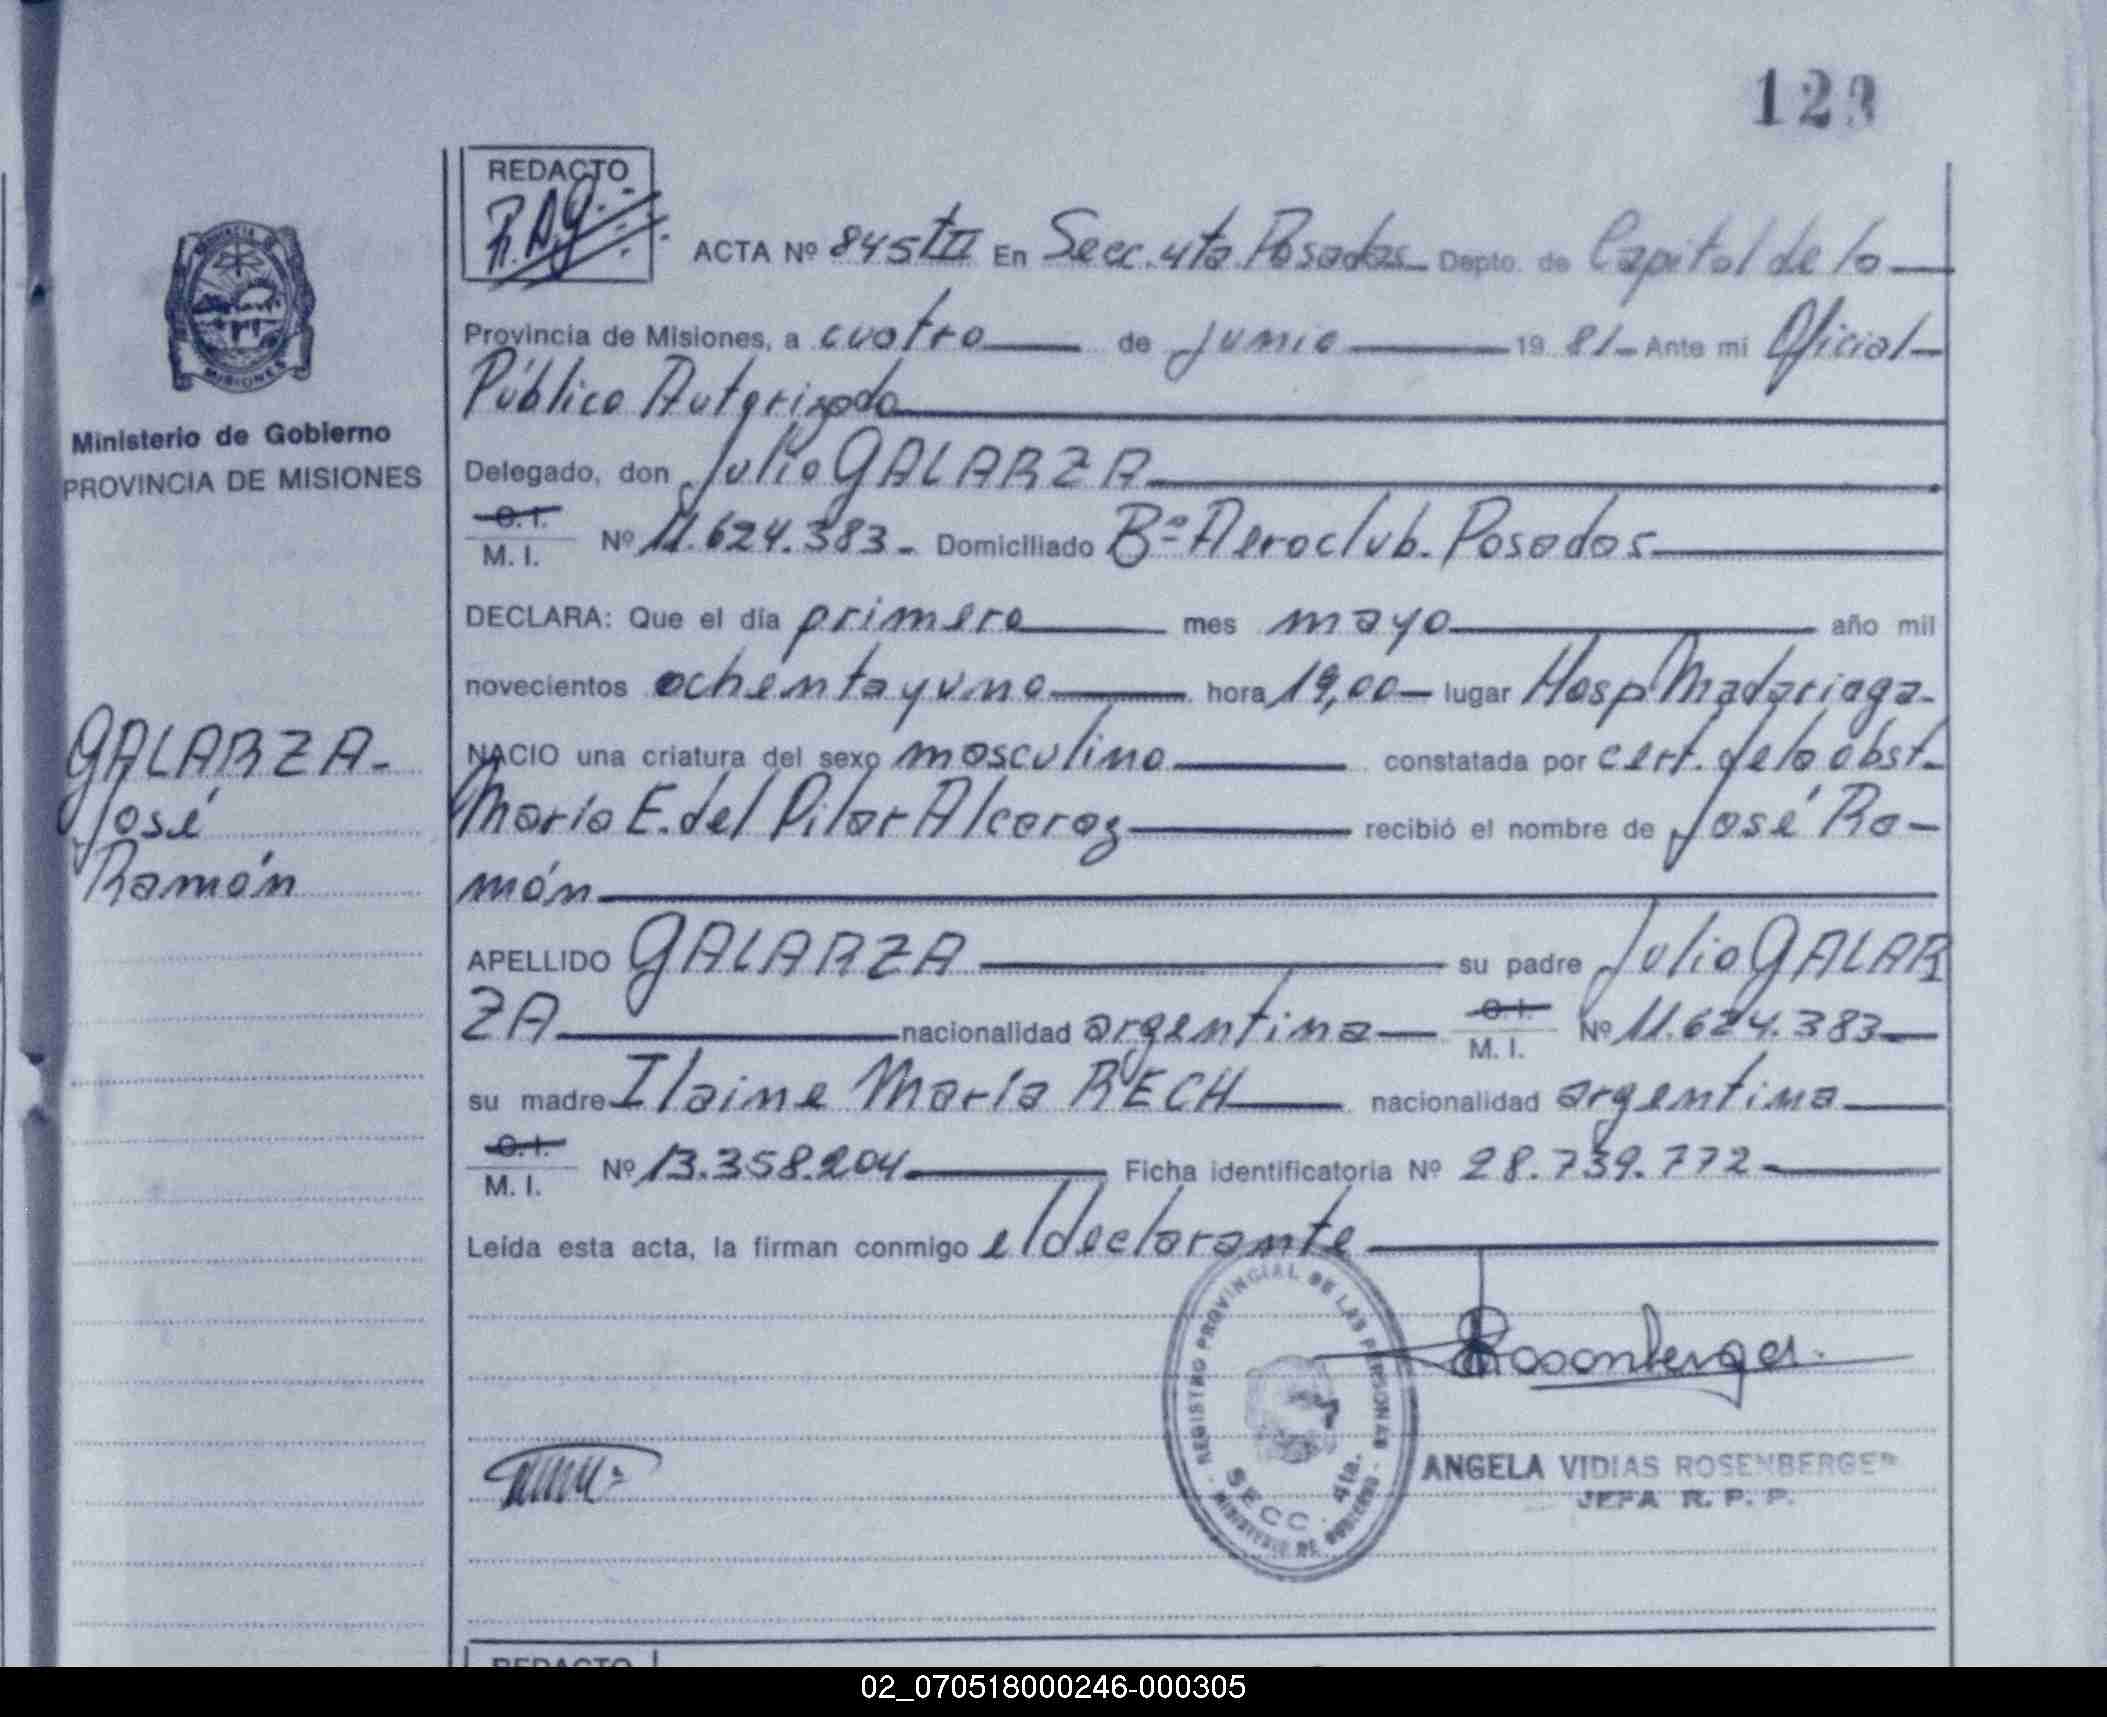 123
REDACTO
R.A.G.
ACTA Nº 845 t II En Secc. 4ta Posadas Depto. de Capital de la
PROVINCIA DE
MISIONES
Provincia de Misiones, a cuatro de junio 1981 Ante mi Oficial
Público Autorizado
Ministerio de Gobierno
PROVINCIA DE MISIONES
Delegado, don Julio GALARZA
C. I.
M. I. Nº 11.624.383 - Domiciliado Bº Aeroclub. Posadas
DECLARA: Que el día primero mes mayo año mil
novecientos ochenta y uno hora 19,00 lugar Hosp Madariaga
GALARZA
José
Ramón
NACIO una criatura del sexo masculino constatada por cert. de la obst.
María E. del Pilar Alcaraz recibió el nombre de José Ra-
món
APELLIDO GALARZA su padre Julio GALAR
ZA nacionalidad argentina C. I. M. I. Nº 11.624.383
su madre Ilaine María RECH nacionalidad argentina
C. I.
M. I. Nº 13.358.204 Ficha identificatoria Nº 28.739.772
Leída esta acta, la firman conmigo el declarante
REGISTRO PROVINCIAL DE LAS PERSONAS
SECC. 4ta.
MINISTERIO DE GOBIERNO
Rosenberger
ANGELA VIDIAS ROSENBERGER
JEFA R. P. P.
REDACTO
02_070518000246-000305